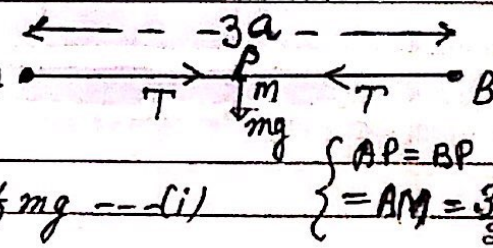 3a
P
T m T B
mg
mg ---(i) { AP = BP
= AM = 3